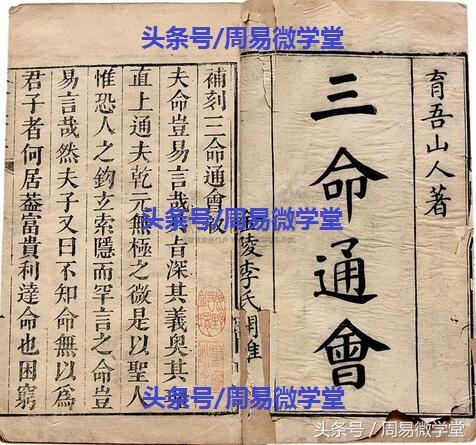 育吾山人著
三命通會
陵李氏
補刻三命通會叙
夫命豈易言哉其旨深其義奥其理
直上通夫乾元無極之微是以聖人
惟恐人之鉤玄索隱而罕言之命豈
易言哉然夫子又曰不知命無以爲
君子者何居葢富貴利達命也困窮
头条号/周易微学堂
头条号/周易微学堂
头条号/周易微学堂
头条号/周易微学堂